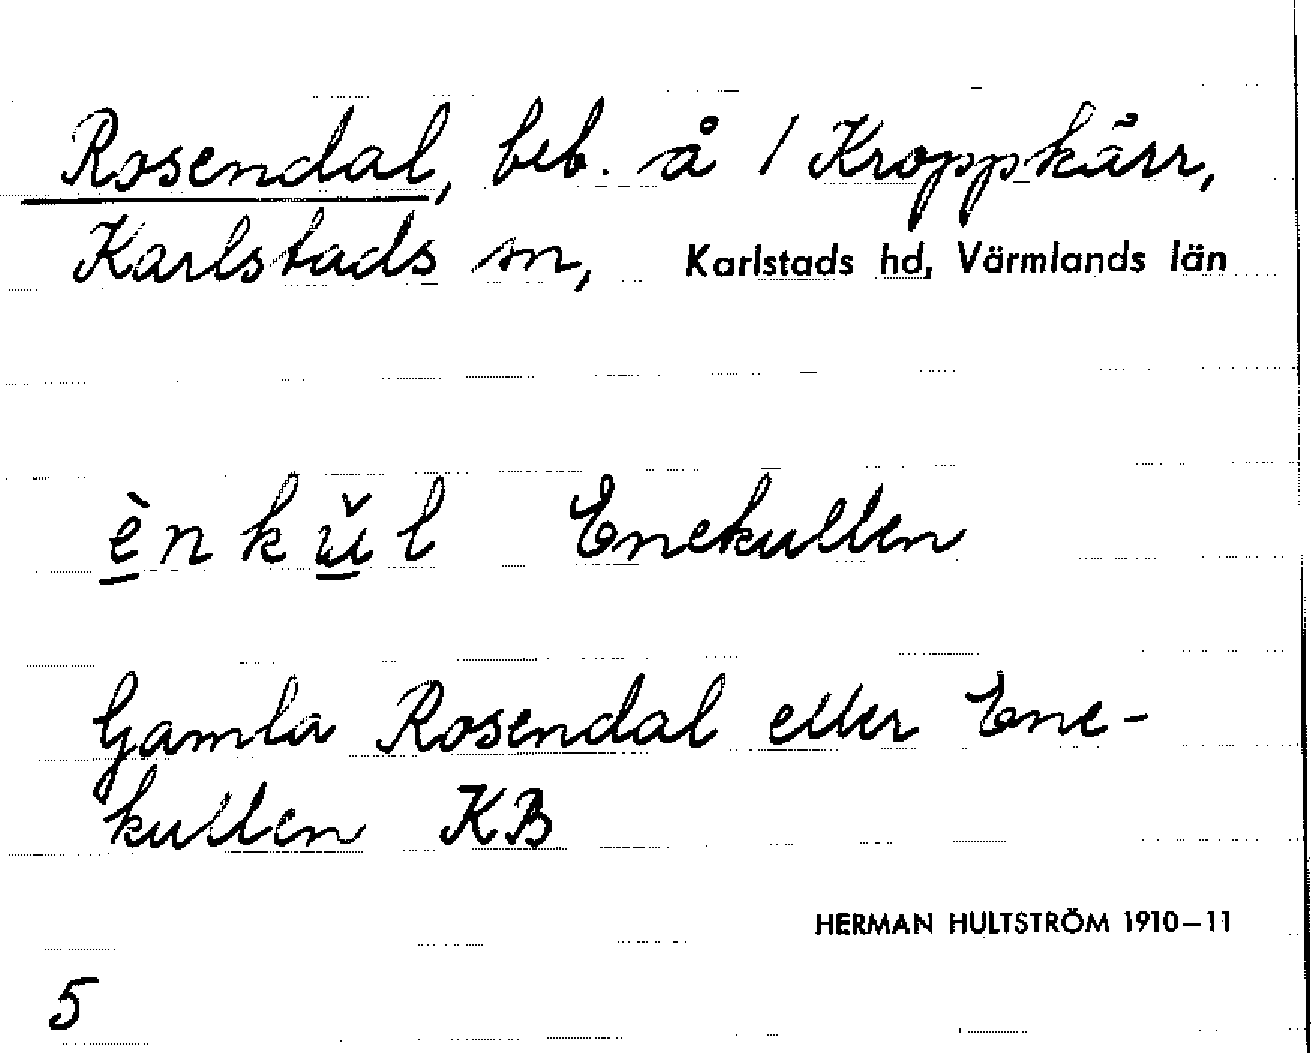 Rosendal, beb. å 1 Kroppkärr,
Karlstads sn, Karlstads hd, Värmlands län
è̱nkṵ̆l Enekullen
Gamla Rosendal eller Ene-
kullen KB
HERMAN HULTSTRÖM 1910–11
5